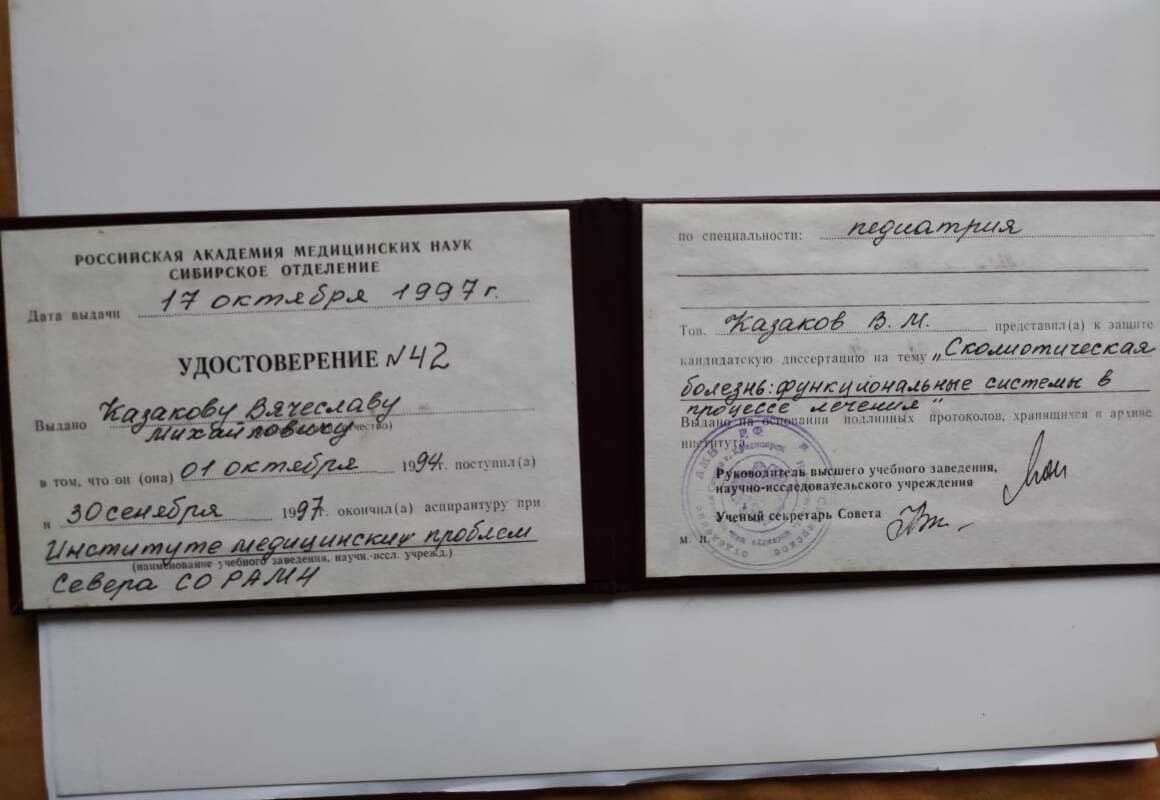 РОССИЙСКАЯ АКАДЕМИЯ МЕДИЦИНСКИХ НАУК
СИБИРСКОЕ ОТДЕЛЕНИЕ
Дата выдачи 17 октября 1997 г.
УДОСТОВЕРЕНИЕ N 42
Выдано Казакову Вячеславу
Михайловичу
в том, что он (она) 01 октября 1994 г. поступил(а)
и 30 сенября 1997. окончил(а) аспирантуру при
Институте медицинских проблем
(наименование учебного заведения, научн.-иссл. учрежд.)
Севера СО РАМН
по специальности: педиатрия
Тов. Казаков В. М. представил(а) к защите
кандидатскую диссертацию на тему „Сколиотическая
болезнь: функциональные системы в
процессе лечения"
Выдано на основании подлинных протоколов, хранящихся в архиве
института
Руководитель высшего учебного заведения,
научно-исследовательского учреждения
Ученый секретарь Совета
М. П.